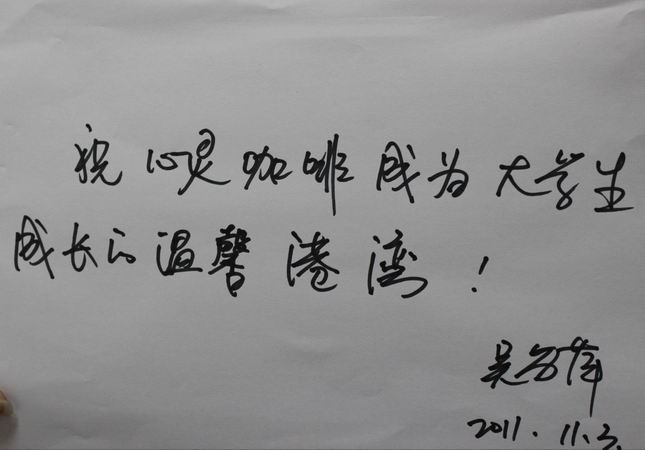 祝心灵咖啡成为大学生
成长的温馨港湾！
吴
2011.11.3.